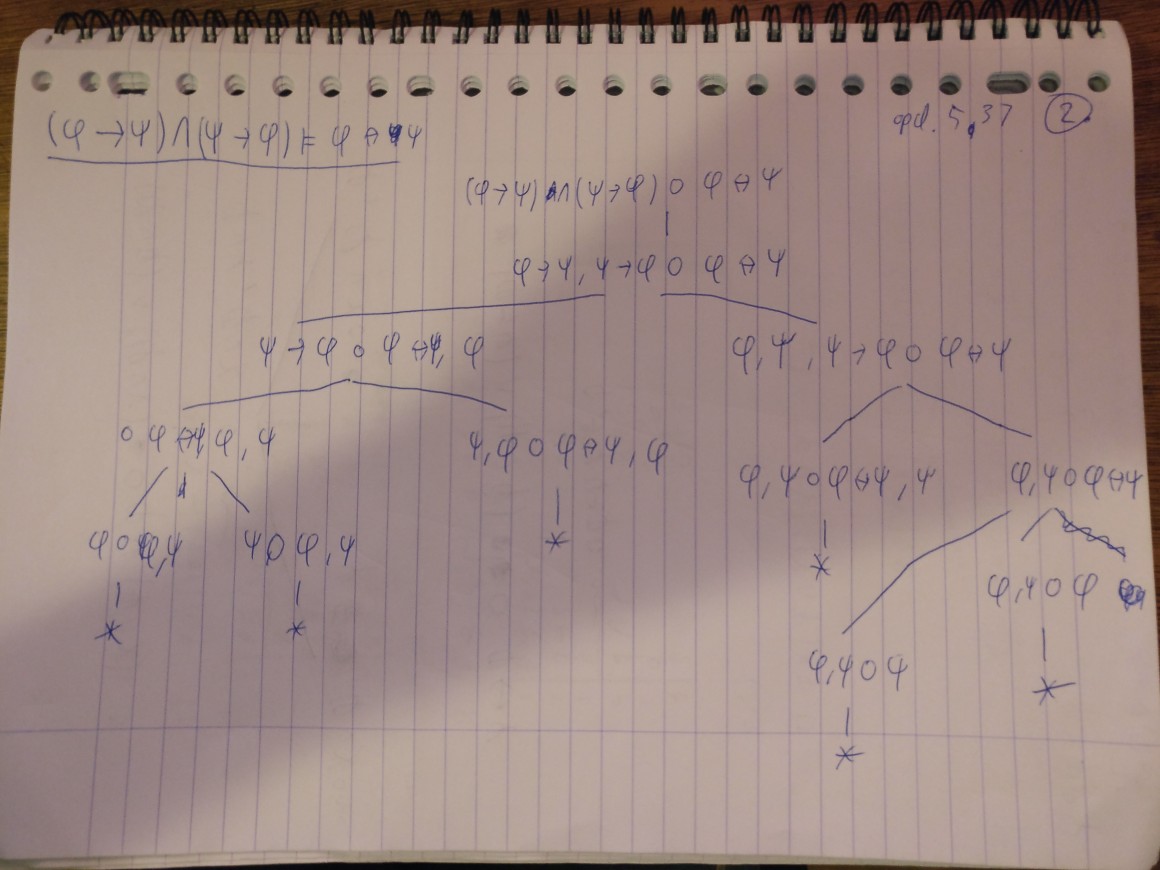 (φ → ψ) ∧ (ψ → φ) ⊨ φ ↔ ψ
opd. 5,37 2.
(φ→ψ) ∧ (ψ→φ) ○ φ ↔ ψ
φ→ψ, ψ→φ ○ φ ↔ ψ
ψ → φ ○ φ ↔ ψ, φ
φ, ψ, ψ → φ ○ φ ↔ ψ
○ φ ↔ ψ, φ, ψ
ψ, φ ○ φ ↔ ψ, φ
φ, ψ ○ φ ↔ ψ, ψ
φ, ψ ○ φ ↔ ψ
φ ○ φ, ψ
ψ ○ φ, ψ
*
*
φ, ψ ○ φ
*
*
*
φ, ψ ○ ψ
*
*